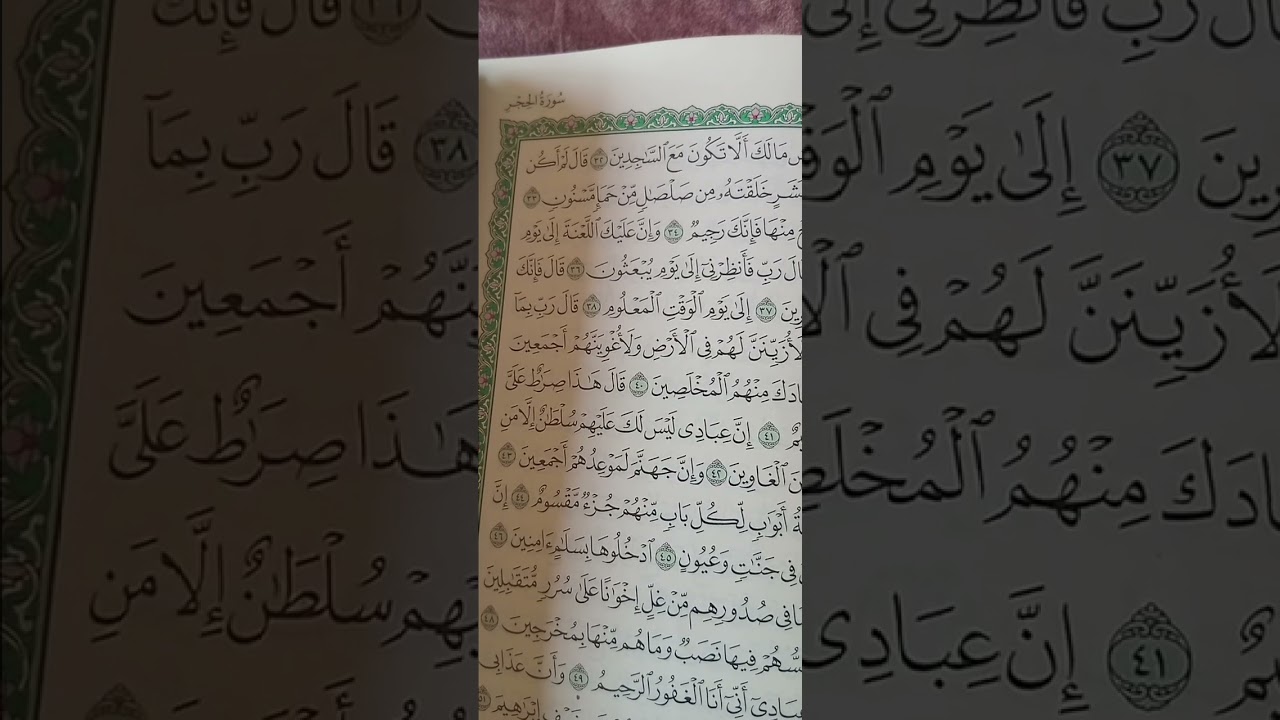 سُورَةُ الحِجْرِ
مَالَكَ أَلَّا تَكُونَ مَعَ ٱلسَّٰجِدِينَ ٣٢ قَالَ لَمْ أَكُن
خَلَقْتَهُۥ مِن صَلْصَٰلٍ مِّنْ حَمَإٍ مَّسْنُونٍ ٣٣
مِنْهَا فَإِنَّكَ رَجِيمٌ ٣٤ وَإِنَّ عَلَيْكَ ٱللَّعْنَةَ إِلَىٰ يَوْمِ
رَبِّ فَأَنظِرْنِىٓ إِلَىٰ يَوْمِ يُبْعَثُونَ ٣٦ قَالَ فَإِنَّكَ
٣٧ إِلَىٰ يَوْمِ ٱلْوَقْتِ ٱلْمَعْلُومِ ٣٨ قَالَ رَبِّ بِمَآ
لَأُزَيِّنَنَّ لَهُمْ فِى ٱلْأَرْضِ وَلَأُغْوِيَنَّهُمْ أَجْمَعِينَ
مِنْهُمُ ٱلْمُخْلَصِينَ ٤٠ قَالَ هَٰذَا صِرَٰطٌ عَلَىَّ
٤١ إِنَّ عِبَادِى لَيْسَ لَكَ عَلَيْهِمْ سُلْطَٰنٌ إِلَّا مَنِ
ٱلْغَاوِينَ ٤٢ وَإِنَّ جَهَنَّمَ لَمَوْعِدُهُمْ أَجْمَعِينَ ٤٣
أَبْوَٰبٍ لِّكُلِّ بَابٍ مِّنْهُمْ جُزْءٌ مَّقْسُومٌ ٤٤ إِنَّ
فِى جَنَّٰتٍ وَعُيُونٍ ٤٥ ٱدْخُلُوهَا بِسَلَٰمٍ ءَامِنِينَ ٤٦
فِى صُدُورِهِم مِّنْ غِلٍّ إِخْوَٰنًا عَلَىٰ سُرُرٍ مُّتَقَٰبِلِينَ
فِيهَا نَصَبٌ وَمَا هُم مِّنْهَا بِمُخْرَجِينَ ٤٨
أَنِّىٓ أَنَا ٱلْغَفُورُ ٱلرَّحِيمُ ٤٩ وَأَنَّ عَذَابِى
إِبْرَٰهِيمَ ٥١